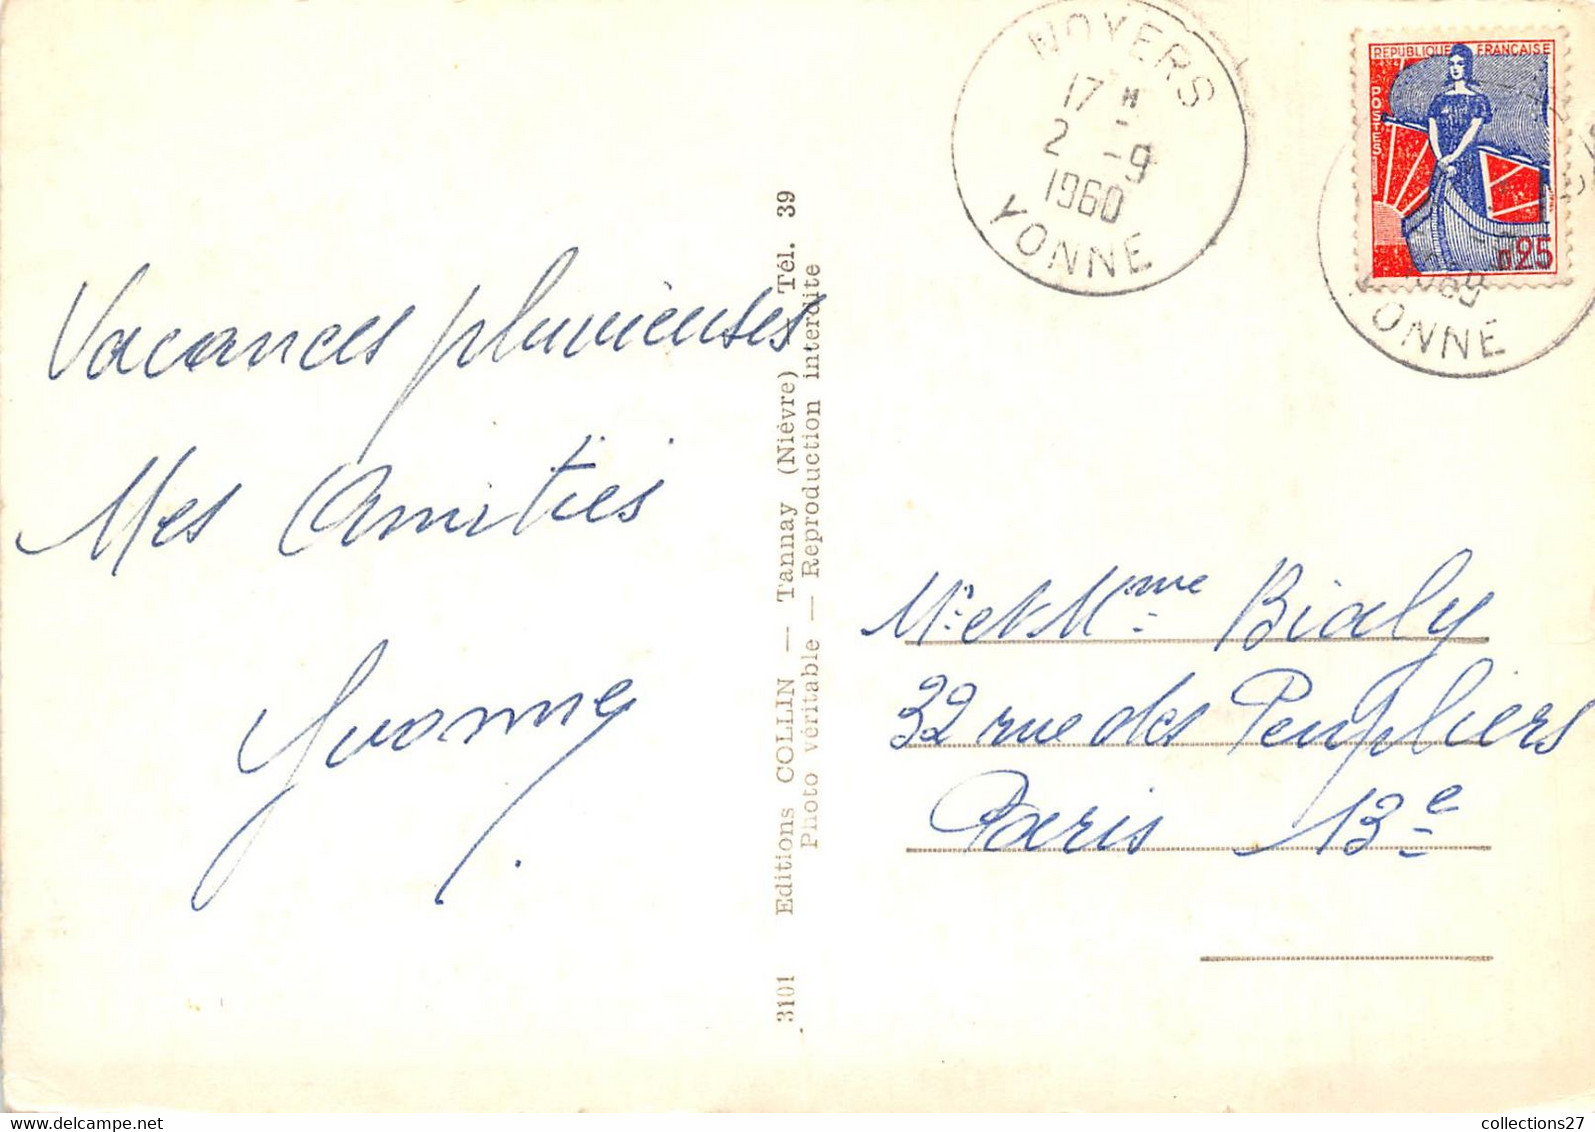 Vacances pluvieuses
Mes Amitiés
Yvonne
3101 Editions COLLIN — Tannay (Nièvre) Tél. 39
Photo véritable — Reproduction interdite
NOYERS
17 H
2 -9
1960
YONNE
REPUBLIQUE FRANÇAISE
POSTES
0,25
YONNE
Mr et Mme Bialy
32 rue des Peupliers
Paris 13e
collections27